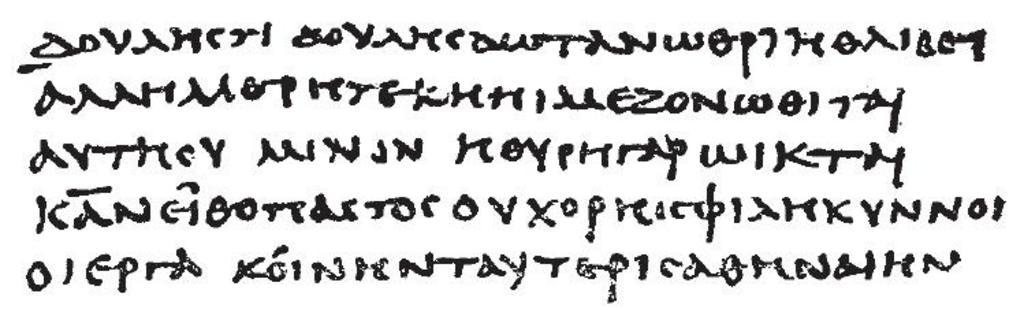 ΔΟΥΛΗϹΤΙ ΔΟΥΛΗϹΔΩΤΑΝΩΘΡΙΗΘΛΙΒΕΙ
ΑΛΛΗΜΕΡΗΤΕΚΗΠΙΜΕΖΟΝΩΘΙΤΑΙ
ΑΥΤΗϹΥ ΜΙΝΟΝ ΗΘΥΡΗΓΑΡΩΙΚΤΑΙ
ΚΑΝΕΙΘΟΠΑϹΤΟϹΟΥΧΟΡΗΙϹΦΙΛΗΚΥΝΝΟΙ
ΟΙΕΡΓΑ ΚΟΙΝΗΝΤΑΥΤΕΡΙϹΑΘΗΝΑΙΗΝ